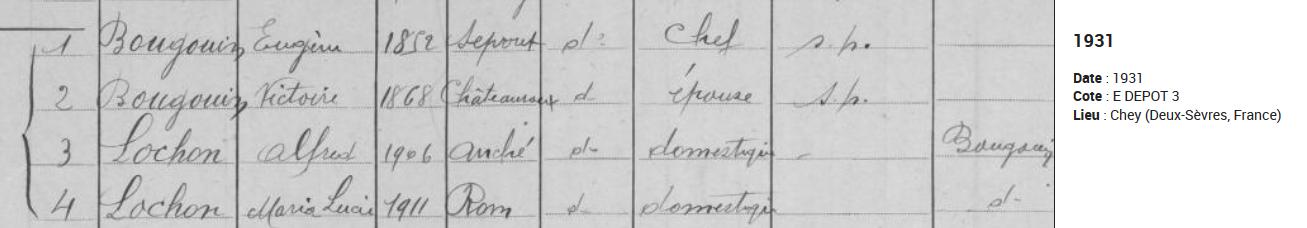 1 Bougouin Eugène 1852 Sepvret d° Chef s.p.
2 Bougouin Victoire 1868 Châteauroux d- épouse s.p.
3 Lochon Alfred 1906 André d- domestique - Bougouin
4 Lochon Maria Lucie 1911 Rom d- domestique d-
1931
Date : 1931
Cote : E DEPOT 3
Lieu : Chey (Deux-Sèvres, France)